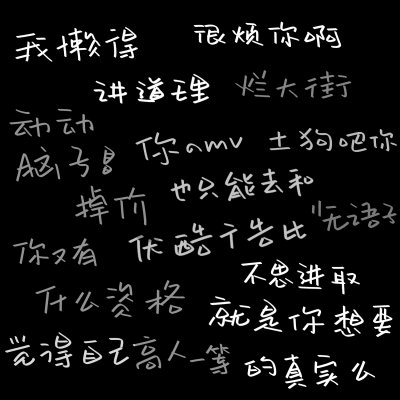 我懒得 很烦你啊
讲道理 烂大街
动动
脑子! 你amv 土狗吧你
掉价 也只能去和
你又有 伏酷干告比 "无语子
不思进取
什么资格 就是你想要
觉得自己高人一等 的真实么